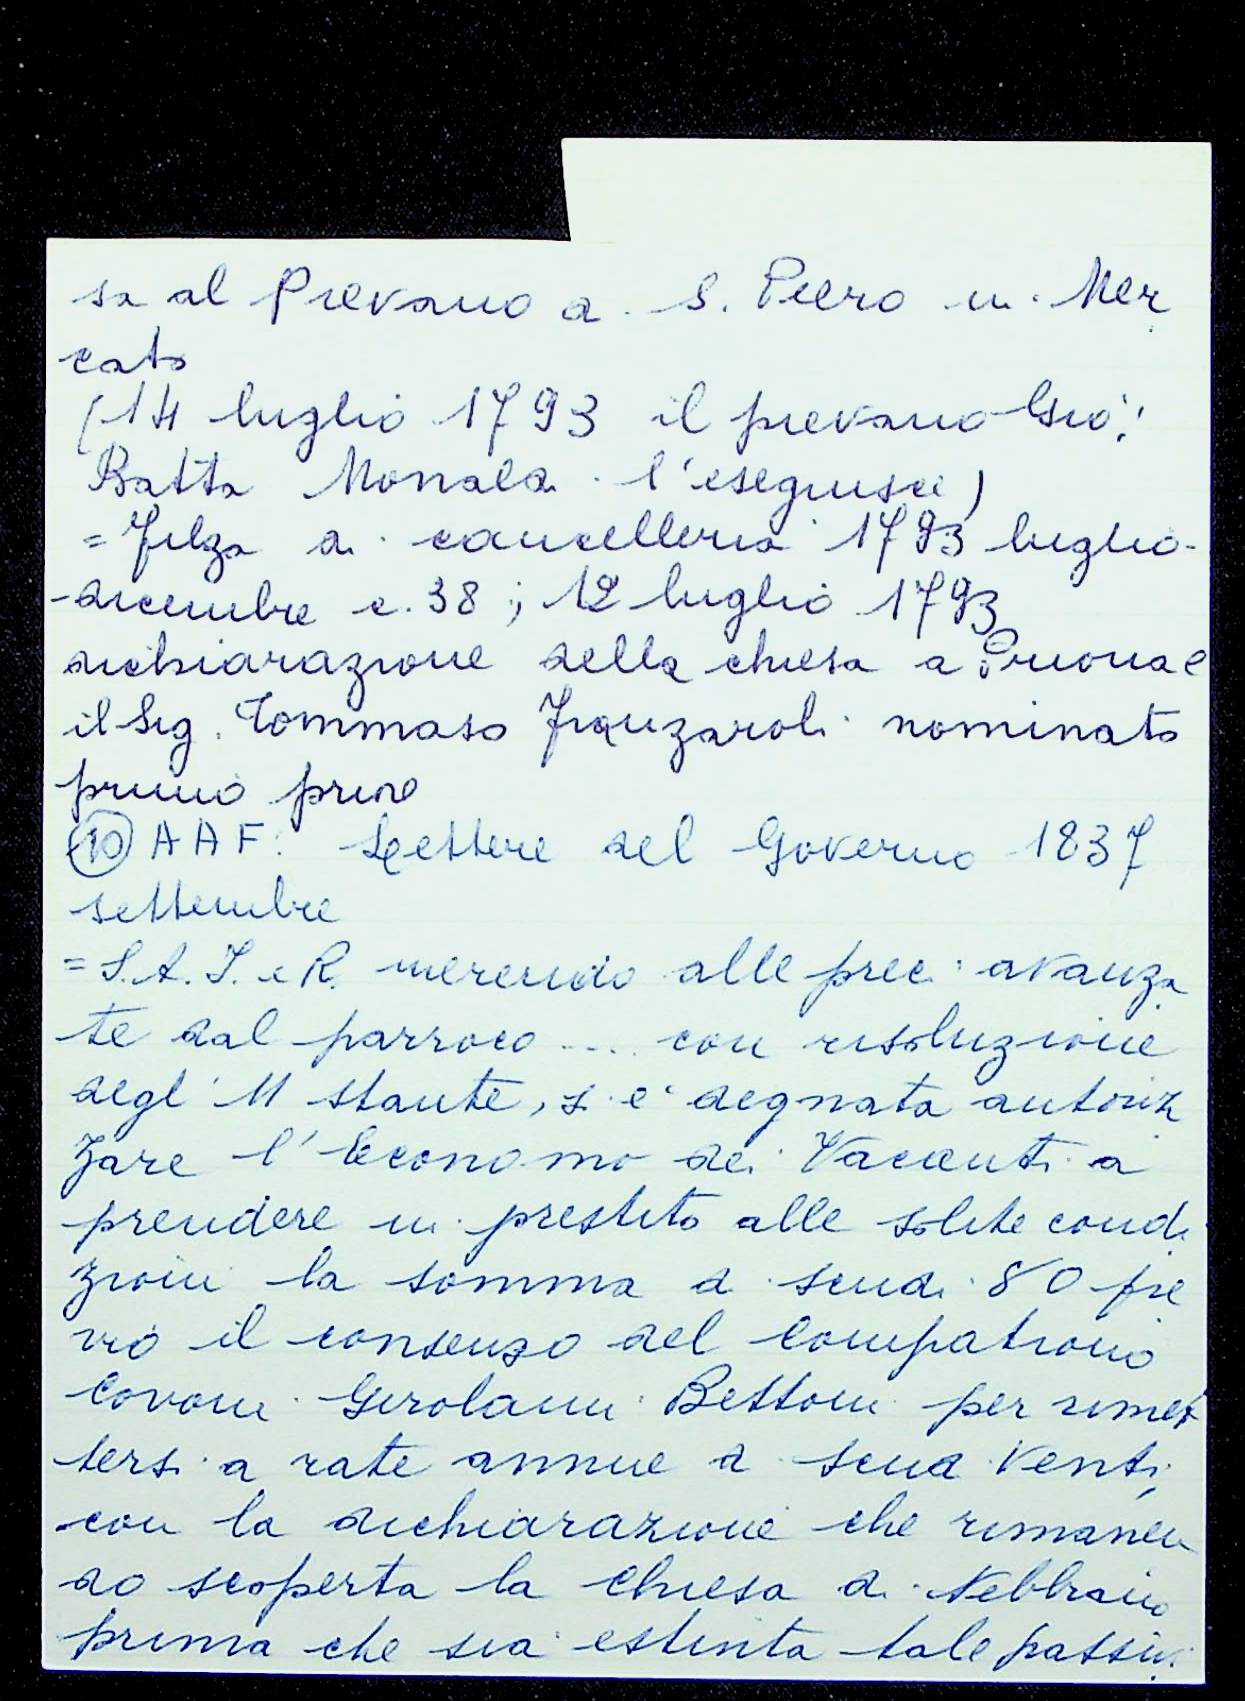 sa al Pievano di S. Piero in Mer
cato
(14 luglio 1793 il pievano Gio:
Batta Monaldi l'eseguisce)
= Filza di cancelleria 1793 luglio-
-dicembre c. 38; 12 luglio 1793
dichiarazione della chiesa a Prioria e
il Sig. Tommaso Franzaroli nominato
primo priore
(10) AAF: Lettere del Governo 1837
settembre
= S.A.I. e R. inerendo alle preci avanza
te dal parroco .... con risoluzione
degl' 11 stante, s'è degnata autoriz
zare l'Economo dei Vacanti a
prendere in prestito alle solite condi
zioni la somma di scudi 80 pre
vio il consenso del Compatrono
Covoni Girolami Bettoni per rimet
tersi a rate annue di scudi venti,
con la dichiarazione che rimanen
do scoperta la Chiesa di Nebbiano
prima che sia estinta tale passivi